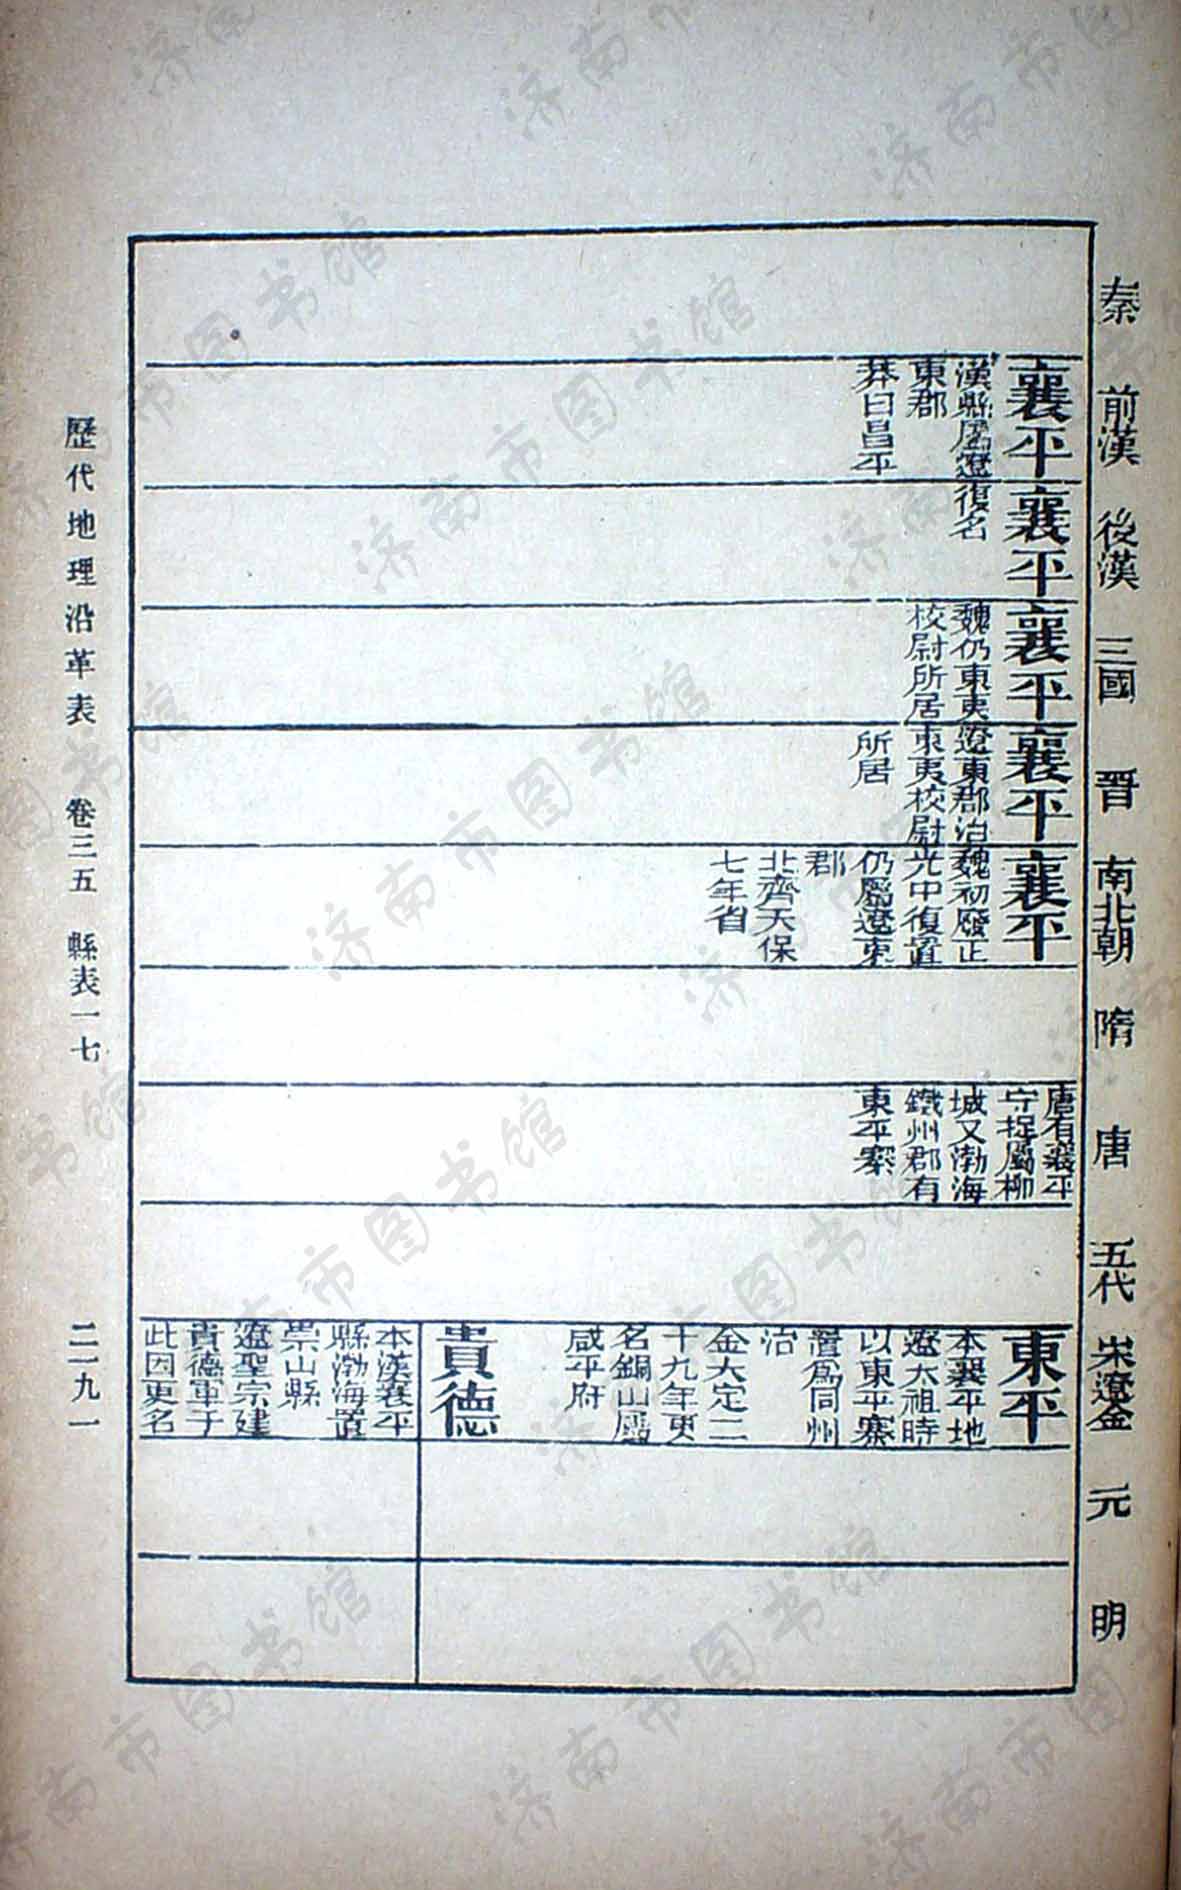 秦
前漢
後漢
三國
晉
南北朝
隋
唐
五代
宋遼金
元
明
襄平
漢縣屬遼
東郡
莽曰昌平
襄平
復名
襄平
魏仍東夷
校尉所居
襄平
遼東郡治
東夷校尉
所居
襄平
魏初廢正
光中復置
仍屬遼東
郡
北齊天保
七年省
唐有襄平
守捉屬柳
城又渤海
鐵州郡有
東平寨
東平
本襄平地
遼太祖時
以東平寨
置爲同州
治
金大定二
十九年更
名銅山屬
咸平府
貴德
本漢襄平
縣渤海置
崇山縣
遼聖宗建
貴德軍于
此因更名
歷代地理沿革表 卷三五 縣表一七
二一九一
济南市图书馆